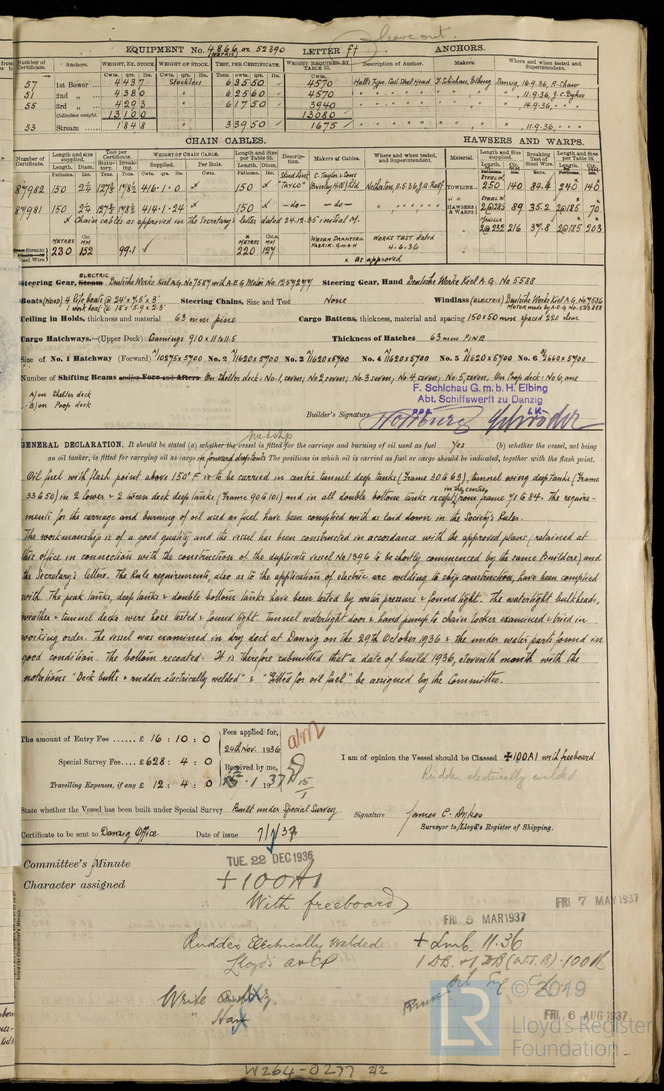 Leave out.
EQUIPMENT No. 4866 or 52390 LETTER ft ANCHORS.
(METRIC)
Number of Certificate. Anchors. WEIGHT, EX. STOCK WEIGHT OF STOCK. TEST, PER CERTIFICATE. WEIGHT REQUIRED BY TABLE 53. Description of Anchor. Makers. Where and when tested and Superintendent.
Cwts. qrs. lbs. Cwts. qrs. lbs. Tons. cwts. qrs. lbs. Cwts.
57 1st Bower 4437 Stockless 63550 4570 Halls Type Cast Steel Head F. Schichau, Elbing Danzig, 16.9.36, R. Shaw
51 2nd " 4380 62560 4570 " " " " " 11.9.36, J.C. Dykes
55 3rd " 4293 61750 3940 " " " " " 14.9.36 " "
Collective weight. 13100 13080
53 Stream 1848 33950 1675 " " " " " 11.9.36, " "
CHAIN CABLES. HAWSERS AND WARPS.
Number of Certificate. Length and size supplied. Test per Certificate. WEIGHT OF CHAIN CABLE. Length and Size per Table 53. Description. Makers of Cables. Where and when tested, and Superintendent. Material Length and Size supplied. Breaking Test of Steel Wire. Length and Size per Table 53.
Length. Diam. Statutory. Breaking. Supplied. Per Rule. Length. Diam. Length. Cir.
87982 150 2¼ 127¾ 178½ 416.1.0 x 150 x Stud Link "TAYCO" S. Taylor & Sons (Brierley Hill) Ltd Netherton, TOWLINE 250 140 84.4 240 140
87981 150 2¼ 127¾ 178½ 414.1.24 x 150 x -do- -do- " " HAWSERS & WARPS 2@285 89 35.2 2@185 70
x Chain cables as approved in the Secretary's letter dated 24.12.35 initial M.
2@232 216 37.8 2@185 203
METRES Cir. MM METRES Cir. MM
Stream (Steel Wire) 230 152 99.1 ✓ 220 127 WORKS TEST dated 4.6.36
x As approved
Steering Gear, ELECTRIC Steam Deutsche Werke Kiel A.G. No 7587 with A.E.G Motor No. Steering Gear, Hand Deutsche Werke Kiel A.G. No 5588
Boats (Wood) 4 life boats @ 24' x 7.5' x 3' Steering Chains, Size and Test None Windlass (ELECTRIC) Deutsche Werke Kiel A.G. No 7586
1 work boat @ 18' x 5.9' x 2.3'
Ceiling in Holds, thickness and material 63 mm pine Cargo Battens, thickness, material and spacing 150x50 mm spaced 220 clear
Cargo Hatchways.—(Upper Deck) Coamings 910 x 11 to 11.5 Thickness of Hatches 63 mm PINE
Size of No. 1 Hatchway (Forward) 10275x5700 No. 2 11620x5700 No. 3 11620x5700 No. 4 11620x5700 No. 5 11620x5700 No. 6 6660x5700
Number of Shifting Beams and/or Fore and Afters On Shelter deck: No. 1, seven; No 2, seven; No 3, seven; No 4, seven; No 5, seven. On Poop deck: No 6, one
A) on Shelter deck
B) on Poop deck
F. Schichau G. m. b. H. Elbing
Abt. Schiffswerft zu Danzig
Builder's Signature
GENERAL DECLARATION. It should be stated (a) whether the vessel is fitted for the carriage and burning of oil used as fuel Yes (b) whether the vessel, not being
an oil tanker, is fitted for carrying oil as cargo in forward deep tanks The positions in which oil is carried as fuel or cargo should be indicated, together with the flash point.
Oil fuel with flash point above 150° F is to be carried in centre tunnel deep tanks (Frame 30 to 63), tunnel wing deep tanks (Frame
33 to 50) in 2 lower & 2 tween deck deep tanks (Frame 90 to 101) and in all double bottom tanks except in the centre from frame 71 to 84. The require-
ments for the carriage and burning of oil used as fuel have been complied with as laid down in the Society's Rules.
The workmanship is of a good quality and the vessel has been constructed in accordance with the approved plans, retained at
this office in connection with the construction of the duplicate vessel No 1396 to be shortly commenced by the same Builders, and
the Secretary's letters. The Rule requirements, also as to the application of electric arc welding to ship construction, have been complied
with. The peak tanks, deep tanks & double bottom tanks have been tested by water pressure & found tight. The watertight bulkheads,
weather & tunnel decks were hose tested & found tight. Tunnel watertight door & hand pump to chain locker examined & tried in
working order. The vessel was examined in dry dock at Danzig on the 29th October 1936 & the under water parts found in
good condition. The bottom recoated. It is therefore submitted that a date of build 1936, eleventh month with the
notations "Deck butts & rudder electrically welded" & "Fitted for oil fuel" be assigned by the Committee.
The amount of Entry Fee ...... £ 16 : 10 : 0 Fees applied for,
24th Nov. 1936
Special Survey Fee.... £628 : 4 : 0 Received by me, I am of opinion the Vessel should be Classed ✠100A1 with freeboard
Travelling Expenses, if any £ 12 : 4 : 0 15.1.1937 15/1 Rudder electrically welded
State whether the Vessel has been built under Special Survey. Built under Special Survey Signature James C. Dykes
Surveyor to Lloyd's Register of Shipping.
Certificate to be sent to Danzig Office Date of issue 7/1/37
Committee's Minute TUE. 22 DEC 1936
Character assigned +100A1
With freeboard
FRI 7 MAY 1937
FRI 5 MAR 1937
Rudder Electrically Welded + Lmb. 11.36
Lloyd's A&CP
Write
FRI 6 AUG 1937
LR © 2019
Lloyd's Register
Foundation
W264-0277 2/2